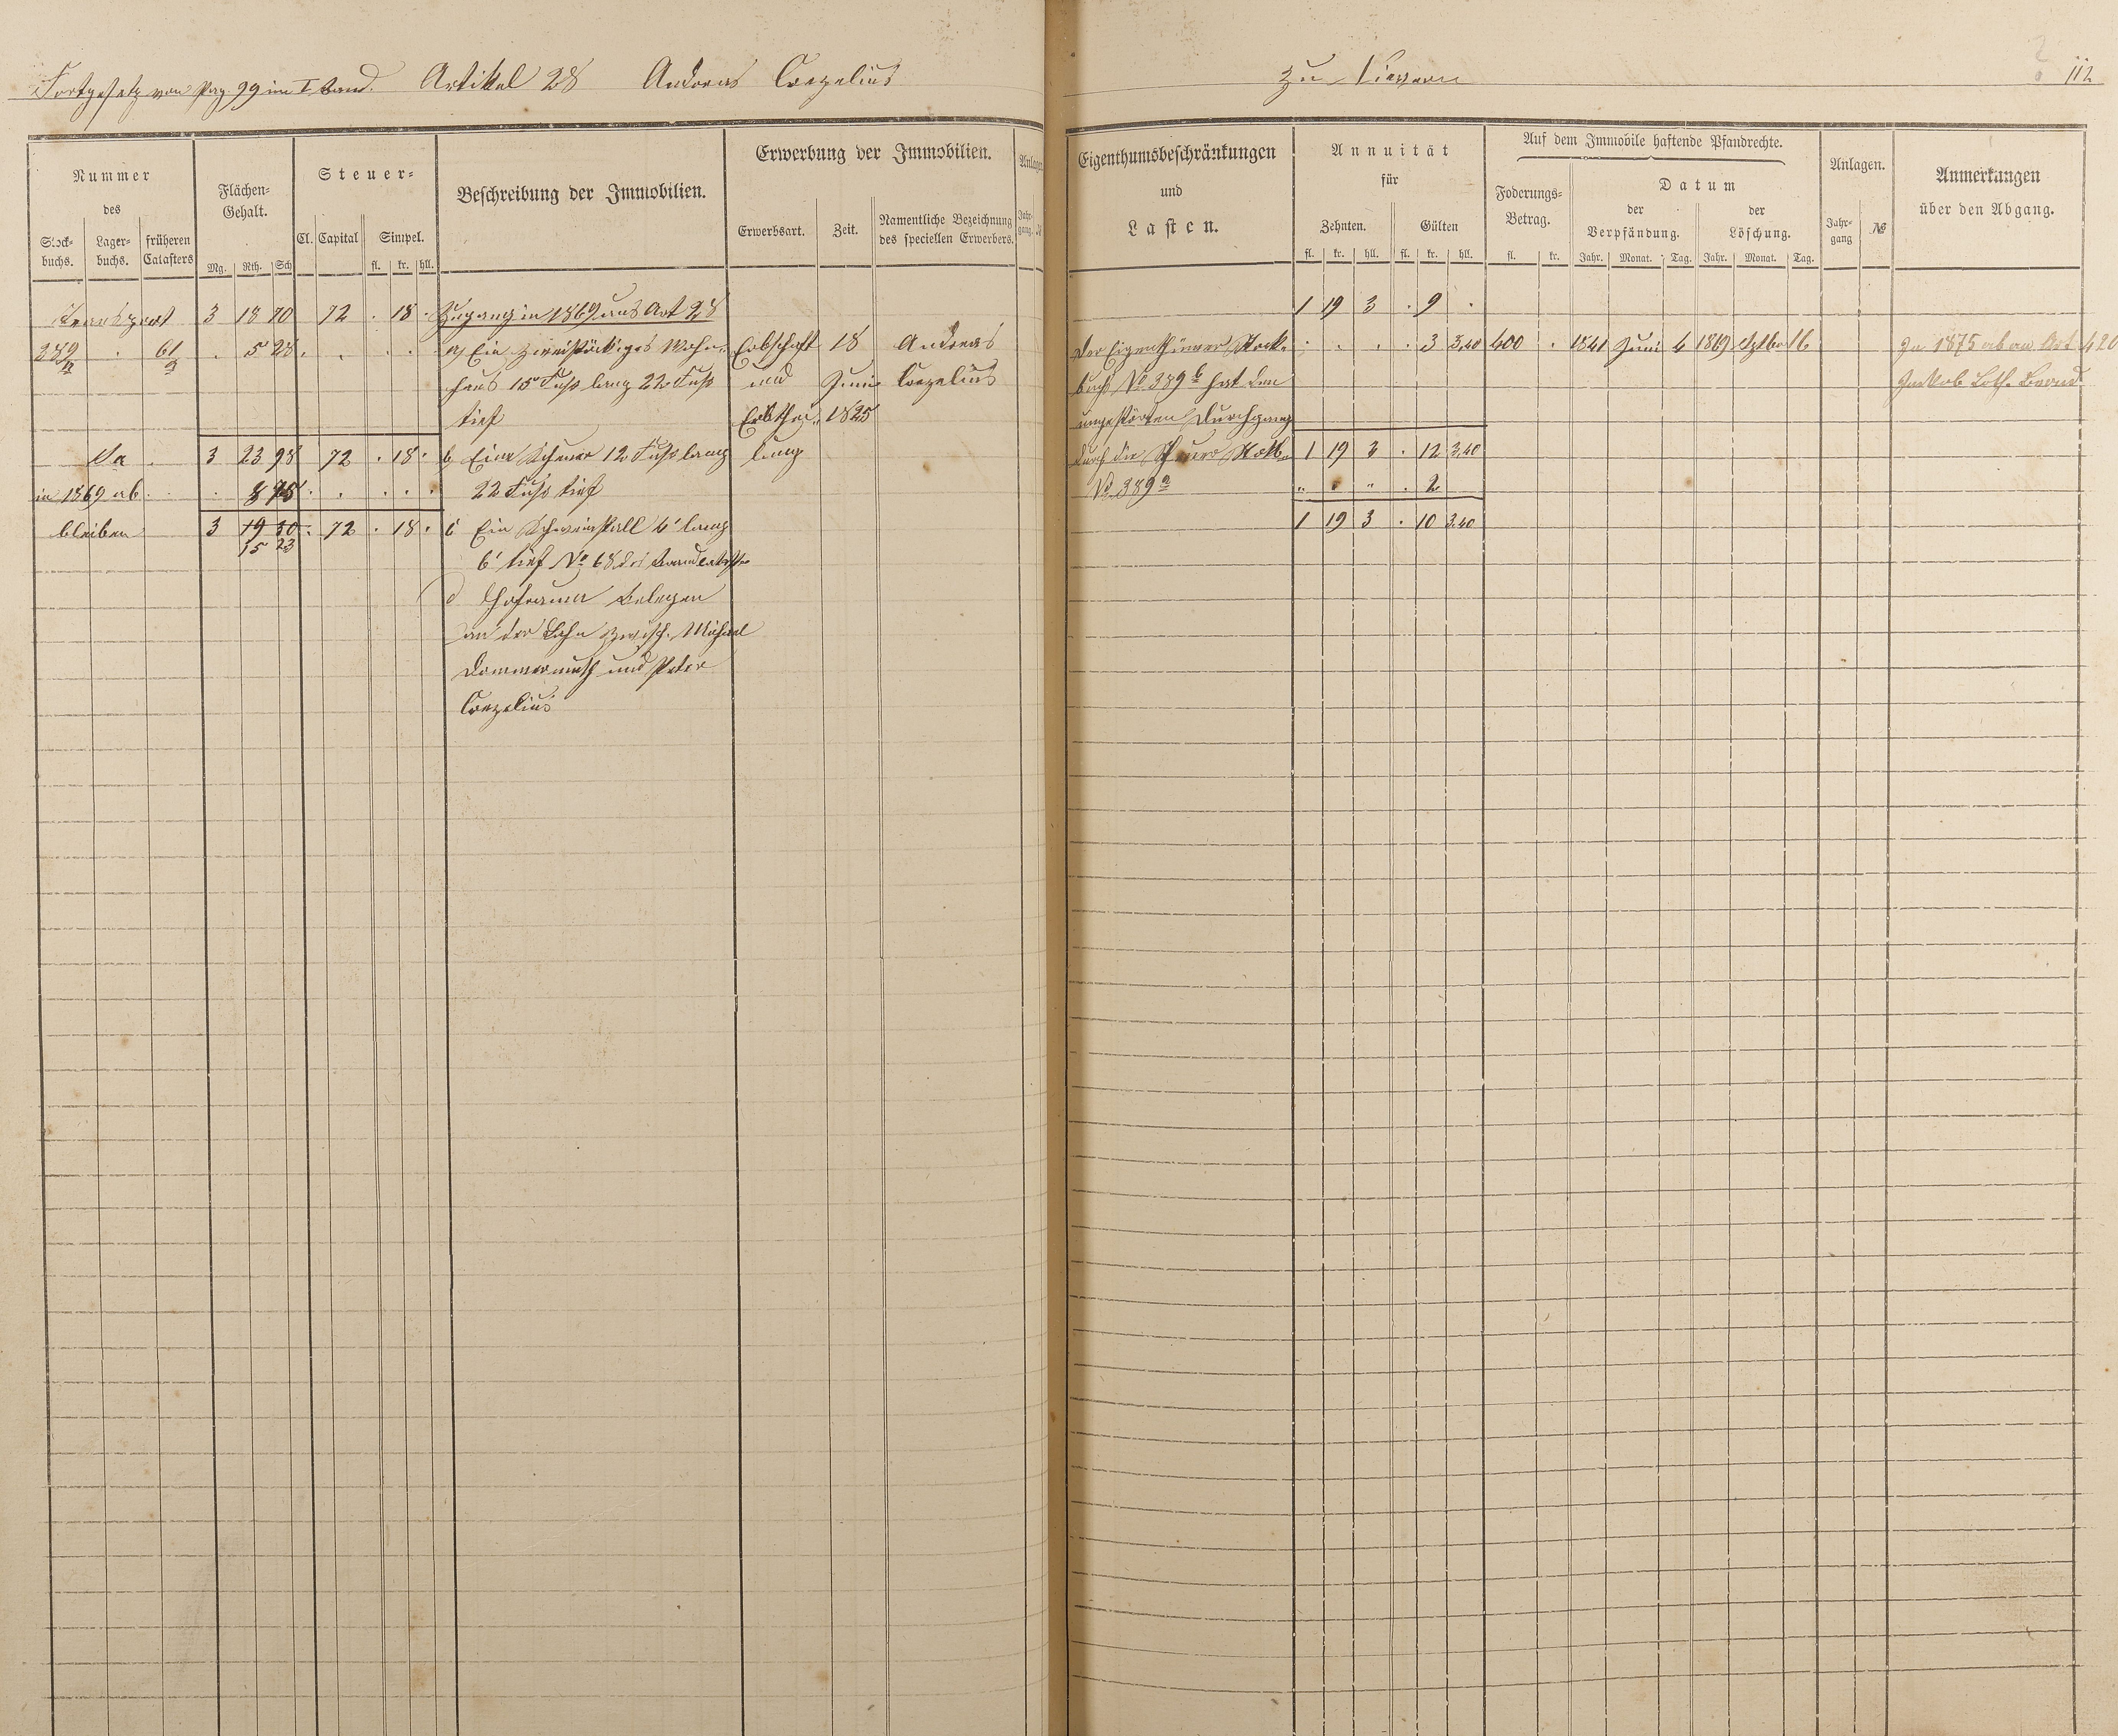 Fortgesetzt von Pag. 99 im I Band. Artikel 28 Andreas Crezelius
zu Kirvorn 112
Nummer
des
Stock-
buchs.
Lager-
buchs.
früheren
Catasters
Flächen-
Gehalt.
Mg. Rth. Sch
Steuer-
Cl. Capital Simpel.
fl. kr. hll.
Beschreibung der Immobilien.
Erwerbung der Immobilien.
Erwerbsart. Zeit.
Namentliche Bezeichnung
des speciellen Erwerbers.
Anlagen
Jahr-
gang. №
Transport 3 18 70 72 . 18 . Zugang in 1869 aus Art 28
289 a . 61 a . 5 28 . . . . a) Ein zweistöckiges Wohn- Erbschaft 18 Andreas
haus 15 Fuß lang 22 Fuß und Juni Crezelius
tief Erbthei- 1825
Sa . 3 23 98 72 . 18 . b, Eine Scheuer 12 Fuß lang lung
in 1869 ab . . . 8 75 . . . . . 22 Fuß tief
bleiben 3 19 30 . 72 . 18 . c Ein Schweinstall 4' lang
15 23
6' tief No 68 des Brandcatasters
d Hofraum Belegen
an der Lahn zwisch. Michael
Dommermuth und Peter
Crezelius
Eigenthumsbeschränkungen
und
Lasten.
Annuität
für
Zehnten. Gülten
fl. kr. hll. fl. kr. hll.
Auf dem Immobile haftende Pfandrechte.
Foderungs-
Betrag.
fl. kr.
Datum
der
Verpfändung.
der
Löschung.
Jahr. Monat. Tag. Jahr. Monat. Tag.
Anlagen.
Jahr-
gang №
Anmerkungen
über den Abgang.
1 19 3 . 9 .
Der Eigenthümer Stock- . . . . 3 3,40 400 . 1841 Juni 4 1869 Sptbr 16 In 1875 ab an Art 420
buch No 389 b hat den Jakob Loth. Brand
ungestörten Durchgang
durch die Scheuer Stockb. 1 19 3 . 12 3,40
No 389 a " " " . 2
1 19 3 . 10 3,40